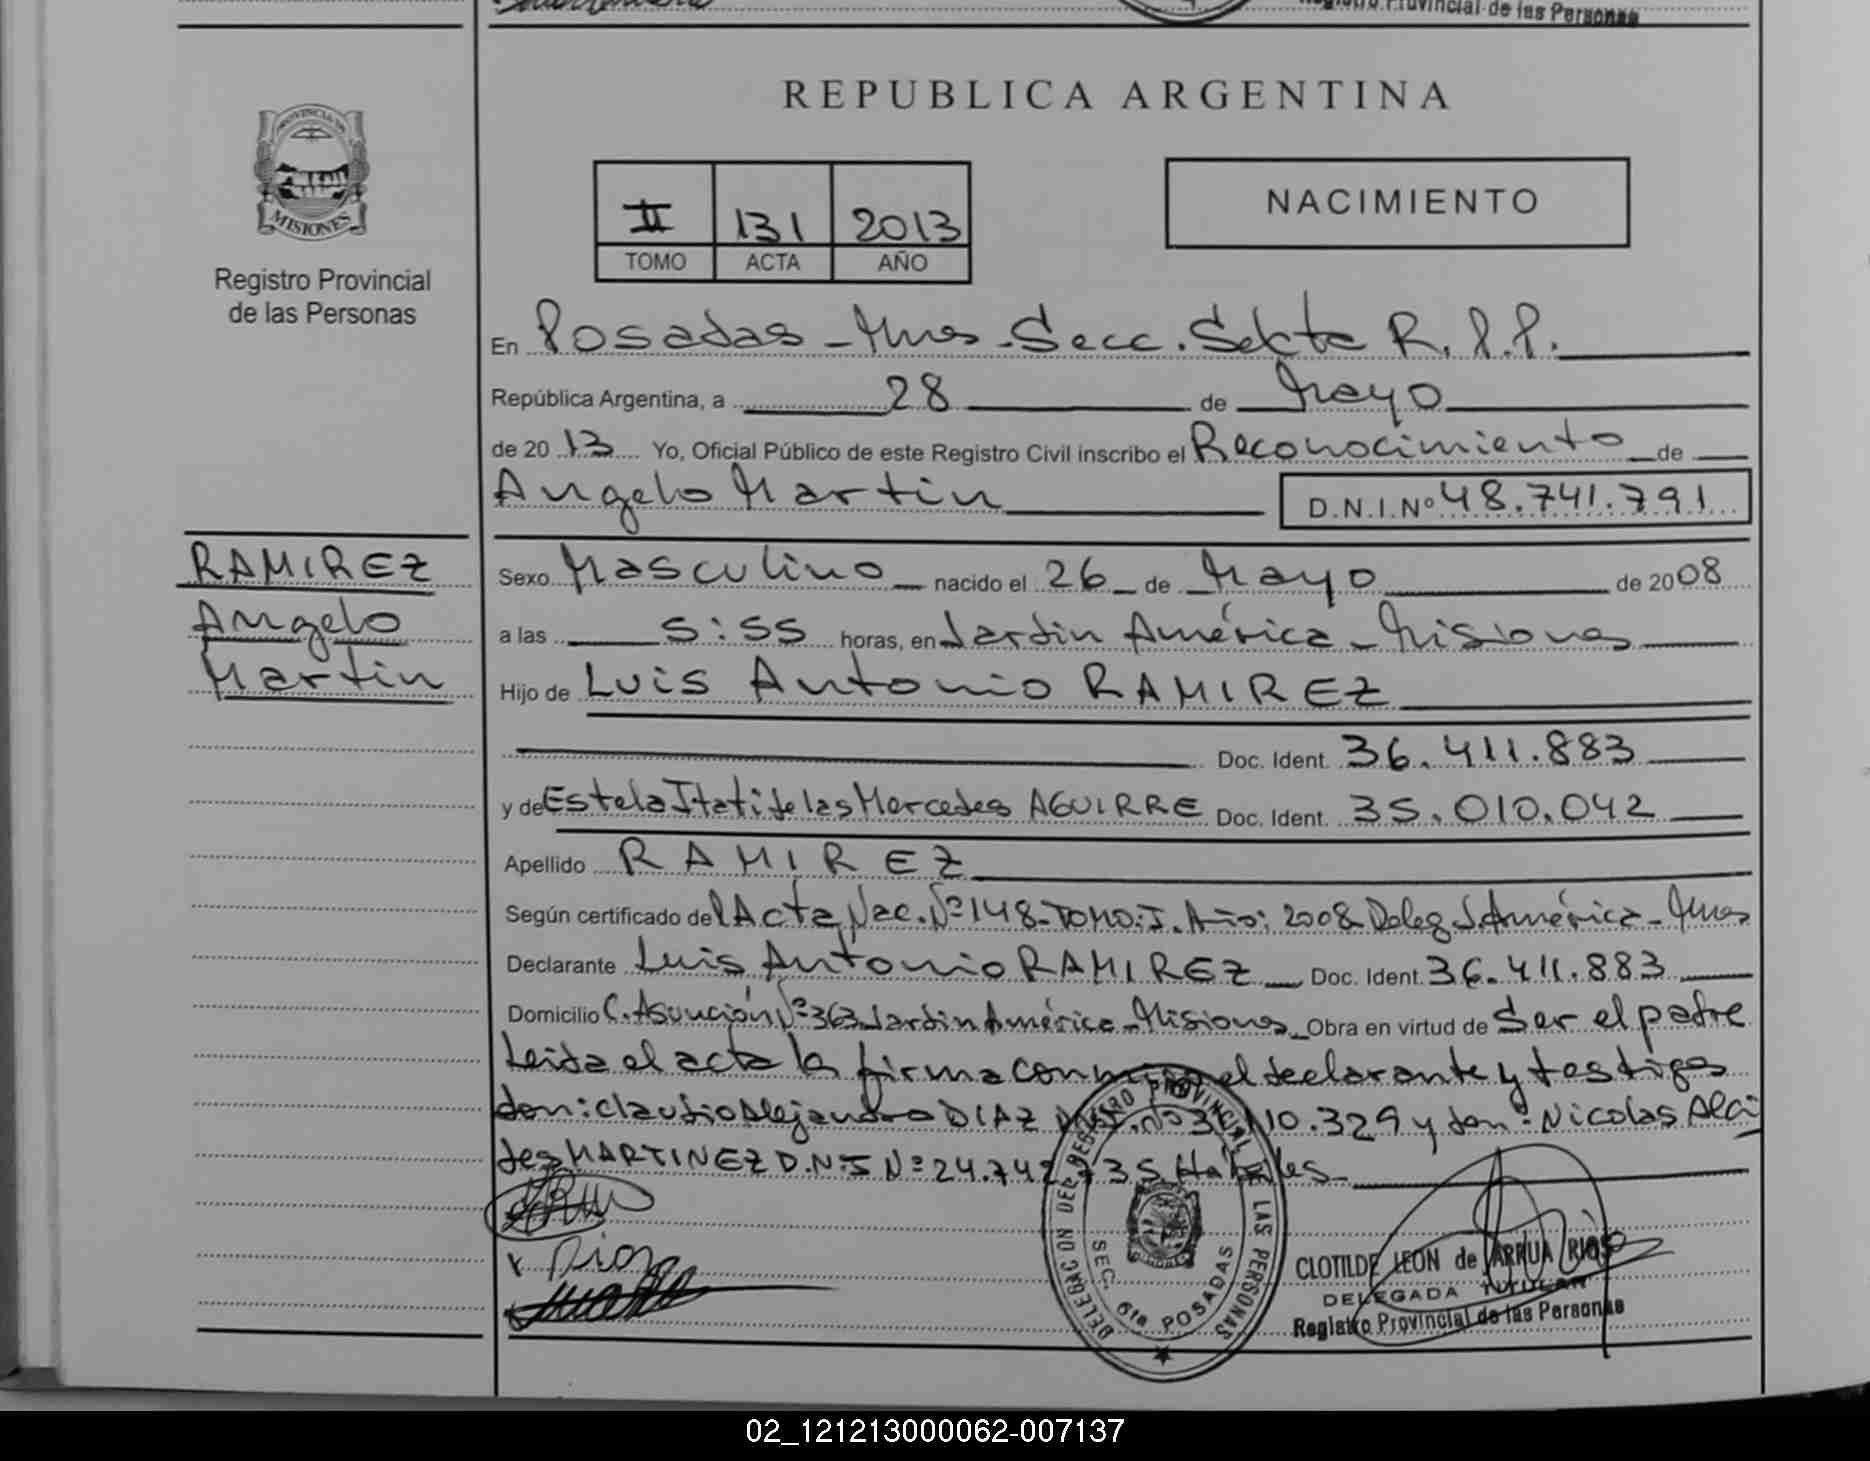 Registro Provincial de las Personas
PROVINCIA DE
MISIONES
Registro Provincial
de las Personas
REPUBLICA ARGENTINA
II 131 2013
TOMO ACTA AÑO
NACIMIENTO
En Posadas - Mnes - Secc. Sexta R.P.P.
República Argentina, a 28 de Mayo
de 2013 Yo, Oficial Público de este Registro Civil inscribo el Reconocimiento de
Angelo Martin D.N.I.Nº 48.741.791
RAMIREZ
Angelo
Martin
Sexo Masculino nacido el 26 de Mayo de 2008
a las 5:55 horas, en Jardin América - Misiones
Hijo de Luis Antonio RAMIREZ
Doc. Ident. 36.411.883
y de Estela Itati de las Mercedes AGUIRRE Doc. Ident. 35.010.042
Apellido RAMIREZ
Según certificado del Acta Nac. Nº 148 - TOMO: I. Año: 2008 Deleg. J. América - Mnes
Declarante Luis Antonio RAMIREZ Doc. Ident. 36.411.883
Domicilio C. Asunción Nº 363 Jardin América - Misiones Obra en virtud de Ser el padre
Leida el acta la firma conmigo el declarante y testigos
don: Claudio Alejandro DIAZ y don: Nicolas Alci
des MARTINEZ D.N.I Nº Habiles
DELEGACION DEL REGISTRO PROVINCIAL DE LAS PERSONAS
SEC. 6ta POSADAS
Diaz
CLOTILDE LEON de ARRUA RIOS
DELEGADA TITULAR
Registro Provincial de las Personas
02_121213000062-007137